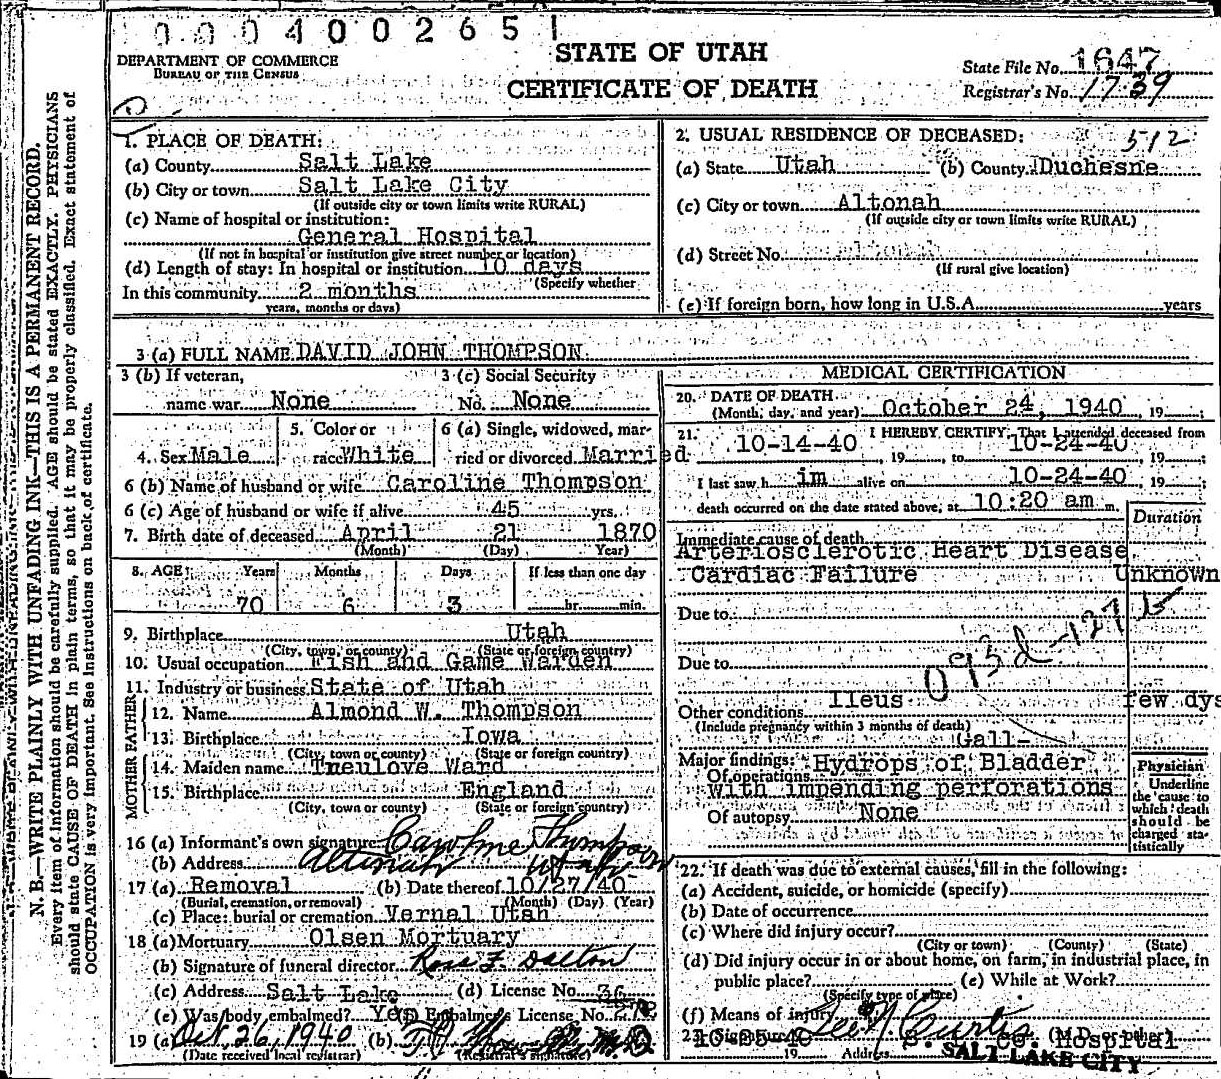 0004002651
DEPARTMENT OF COMMERCE
BUREAU OF THE CENSUS
STATE OF UTAH
CERTIFICATE OF DEATH
State File No. 1647
Registrar's No. 1739
N. B.—WRITE PLAINLY WITH UNFADING INK—THIS IS A PERMANENT RECORD.
Every item of information should be carefully supplied. AGE should be stated EXACTLY. PHYSICIANS
should state CAUSE OF DEATH in plain terms, so that it may be properly classified. Exact statement of
OCCUPATION is very important. See instructions on back of certificate.
1. PLACE OF DEATH:
(a) County Salt Lake
(b) City or town Salt Lake City
(If outside city or town limits write RURAL)
(c) Name of hospital or institution:
General Hospital
(If not in hospital or institution give street number or location)
(d) Length of stay: In hospital or institution 10 days
(Specify whether
In this community 2 months
years, months or days)
2. USUAL RESIDENCE OF DECEASED: 512
(a) State Utah (b) County Duchesne
(c) City or town Altonah
(If outside city or town limits write RURAL)
(d) Street No. Altonah
(If rural give location)
(e) If foreign born, how long in U.S.A. years
3 (a) FULL NAME DAVID JOHN THOMPSON
3 (b) If veteran, name war None
3 (c) Social Security No. None
4. Sex Male
5. Color or race White
6 (a) Single, widowed, married or divorced Married
6 (b) Name of husband or wife Caroline Thompson
6 (c) Age of husband or wife if alive 45 yrs.
7. Birth date of deceased April 21 1870
(Month) (Day) Year)
8. AGE: Years Months Days If less than one day
70 6 3 hr. min.
9. Birthplace Utah
(City, town, or county) (State or foreign country)
10. Usual occupation Fish and Game Warden
11. Industry or business State of Utah
FATHER
12. Name Almond W. Thompson
13. Birthplace Iowa
(City, town or county) (State or foreign country)
MOTHER
14. Maiden name Treulove Ward
15. Birthplace England
(City, town or county) (State or foreign country)
16 (a) Informant's own signature Caroline Thompson
(b) Address Altonah Utah
17 (a) Removal (b) Date thereof 10/27/40
(Burial, cremation, or removal) (Month) (Day) (Year)
(c) Place: burial or cremation Vernal Utah
18 (a) Mortuary Olsen Mortuary
(b) Signature of funeral director Ross F. Dalton
(c) Address Salt Lake (d) License No. 36
(e) Was body embalmed? Yes (f) Embalmer's License No.
19 (a) Oct. 26, 1940 (b)
(Date received local registrar) (Registrar's signature)
MEDICAL CERTIFICATION
20. DATE OF DEATH
(Month, day, and year) October 24, 1940, 19
21. I HEREBY CERTIFY: That I attended deceased from
10-14-40, 19, to 10-24-40, 19;
I last saw him alive on 10-24-40, 19;
death occurred on the date stated above, at 10:20 am m.
Duration
Immediate cause of death
Arteriosclerotic Heart Disease
Cardiac Failure Unknown
Due to
Due to
093d-127b
Ileus few dys
Other conditions
(Include pregnancy within 3 months of death)
Gall-
Major findings: Hydrops of Bladder
Of operations with impending perforations
Of autopsy None
Physician
Underline
the cause to
which death
should be
charged sta-
tistically
22. If death was due to external causes, fill in the following:
(a) Accident, suicide, or homicide (specify)
(b) Date of occurrence
(c) Where did injury occur?
(City or town) (County) (State)
(d) Did injury occur in or about home, on farm, in industrial place, in
public place? (e) While at Work?
(Specify type of place)
(f) Means of injury
23. Signature Lee N. Curtis (M.D. or other)
10-25-40 S. L. Co. Hospital
19 Address SALT LAKE CITY